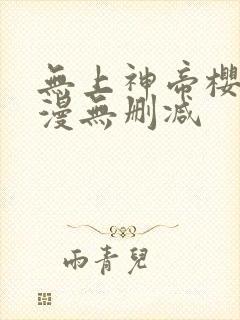 無上神帝櫻
漫無刪减
雨青兒